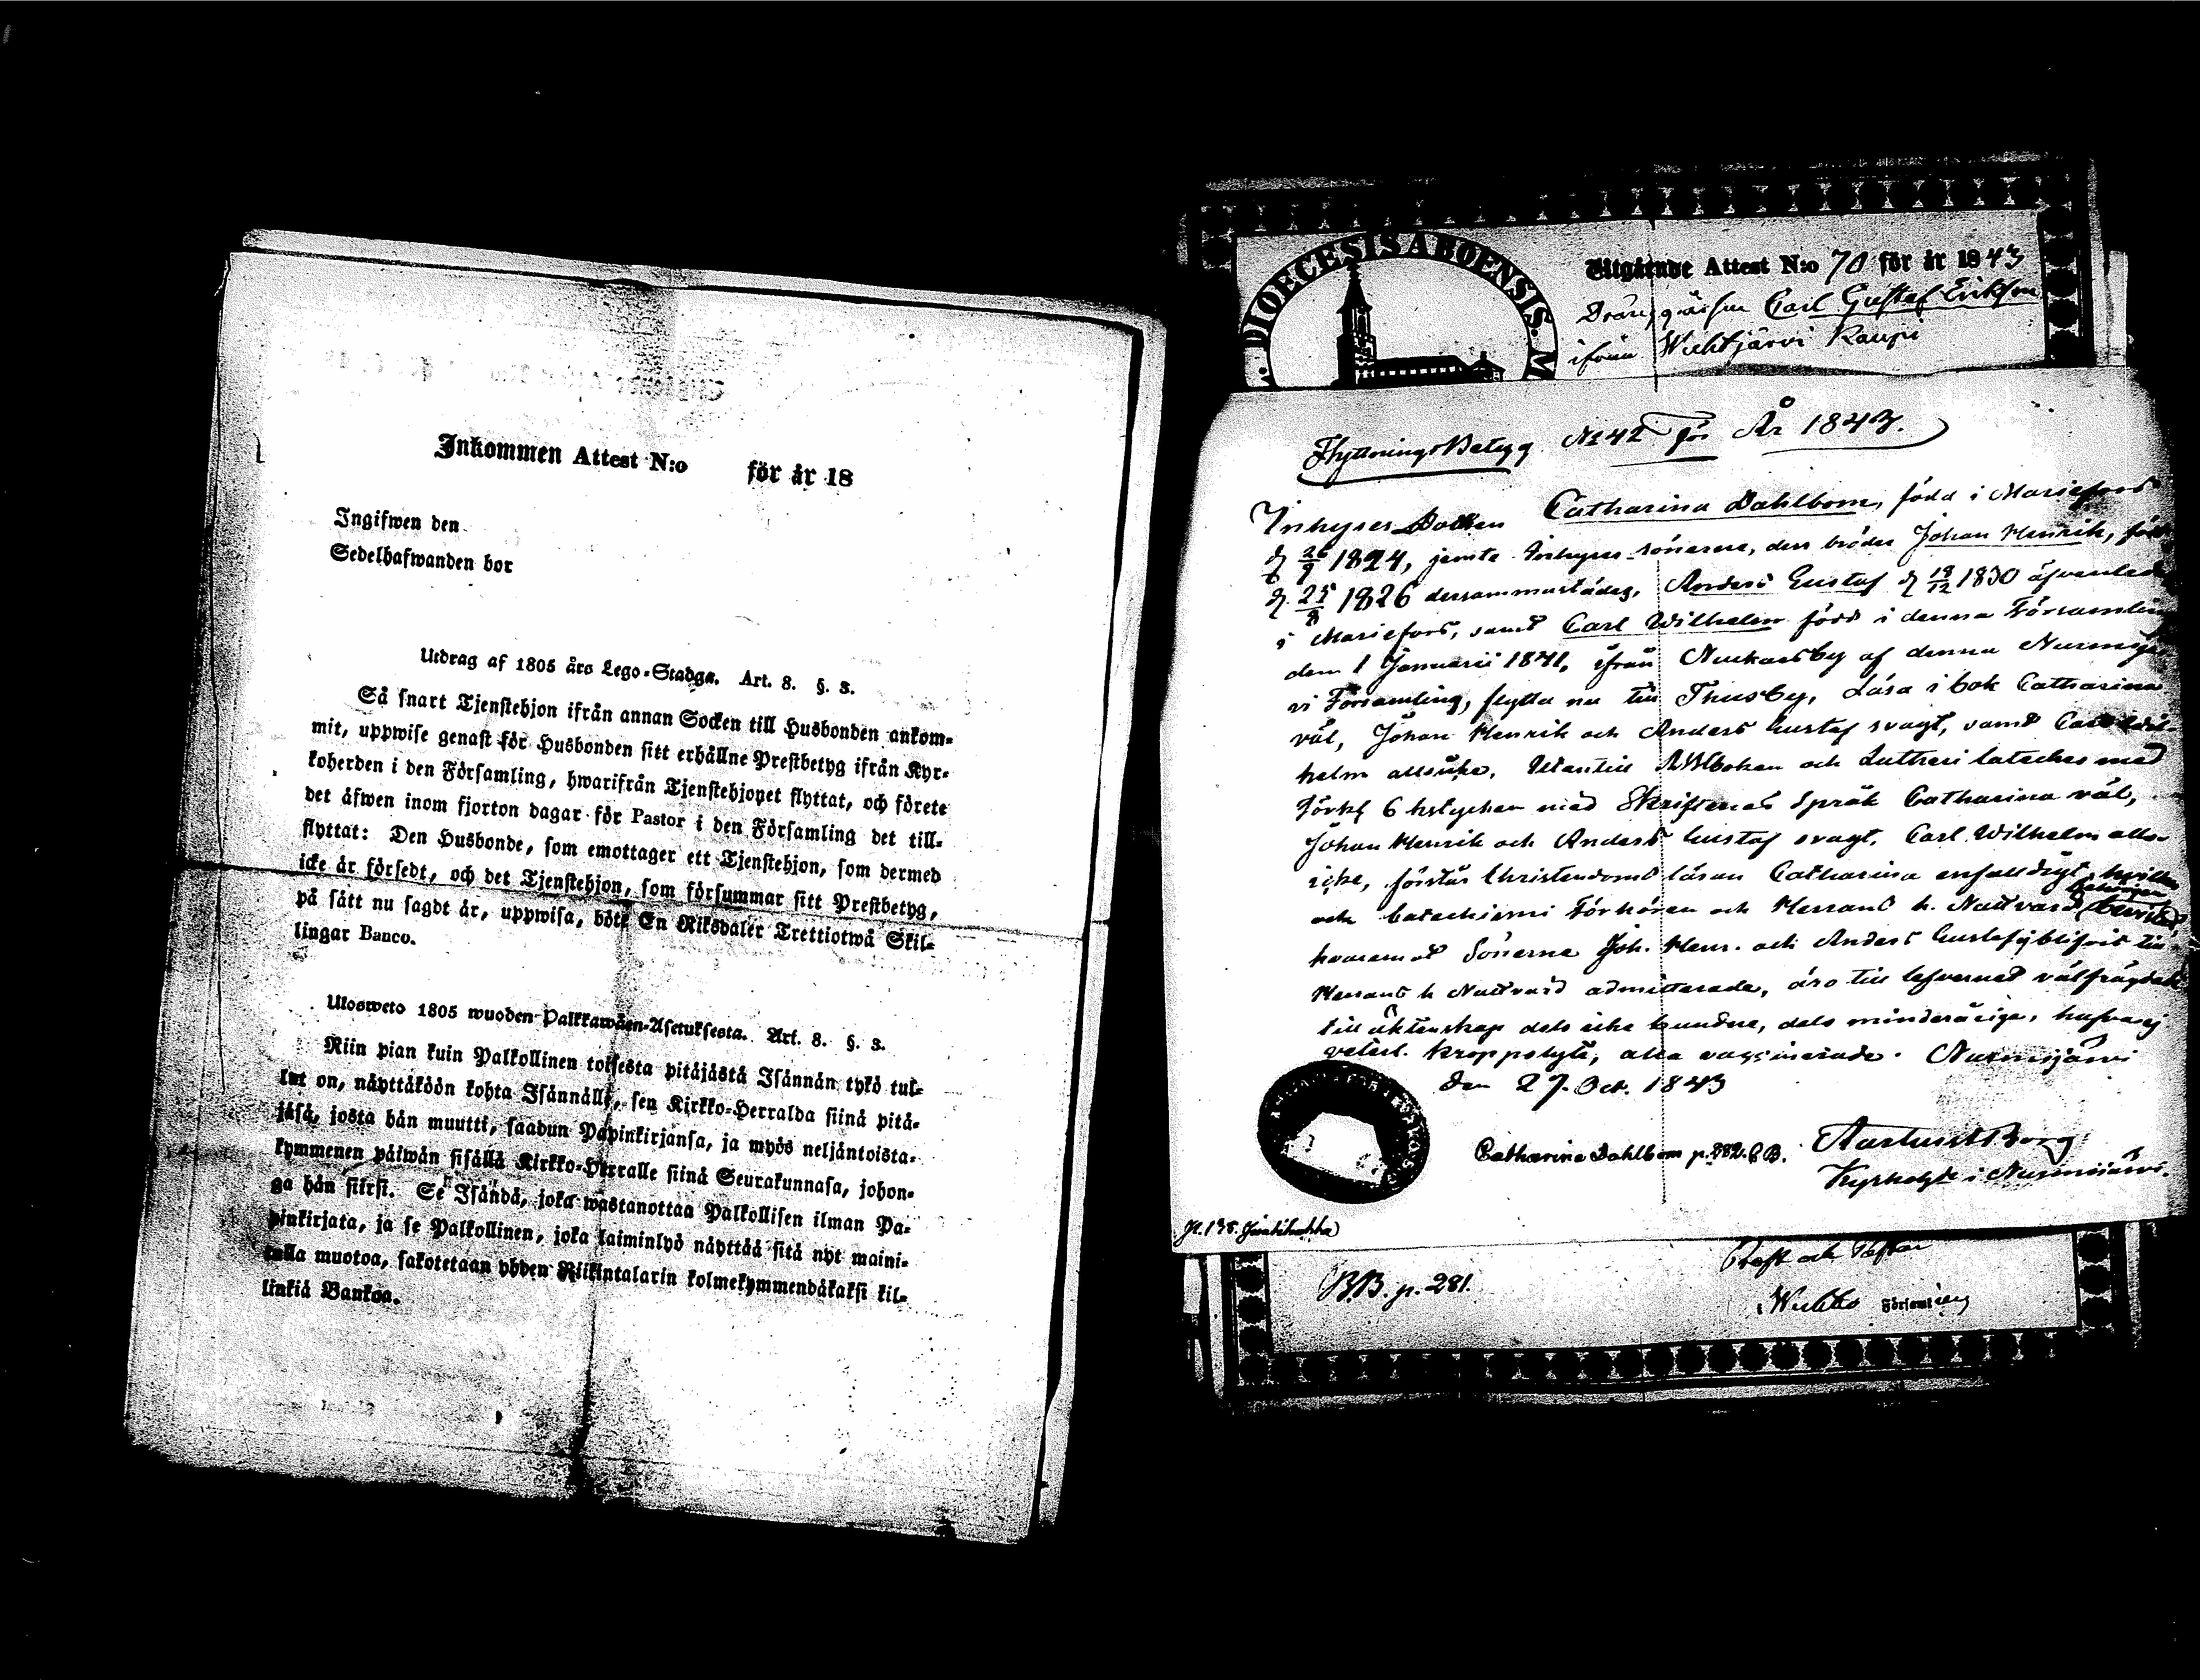 Inkommen Attest N:o för år 18
Ingifwen den
Sedelhafwanden bor
Utdrag af 1805 års Lego-Stadga. Art. 8. §. 3.
Så snart Tjenstehjon ifrån annan Socken till Husbonden ankom-
mit, uppwise genast för Husbonden sitt erhållne Prestbetyg ifrån Kyr-
koherden i den Församling, hwarifrån Tjenstehjonet flyttat, och förete
det äfwen inom fjorton dagar för Pastor i den Församling det till-
flyttat: Den Husbonde, som emottager ett Tjenstehjon, som dermed
icke är försedt, och det Tjenstehjon, som försummar sitt Prestbetyg,
på sätt nu sagdt är, uppwisa, böte En Riksdaler Trettiotwå Skil-
lingar Banco.
Ulosweto 1805 wuoden Palkkawäen-Asetuksesta. Art. 8. §. 3.
Niin pian kuin Palkollinen toisesta pitäjästä Isännän tykö tul-
lut on, näyttäköön kohta Isännälle, sen Kirkko-Herralda siinä pitä-
jäsä, josta hän muutti, saadun Papinkirjansa, ja myös neljäntoista-
kymmenen päiwän sisällä Kirkko-Herralle siinä Seurakunnasa, johon-
ga hän siirsi. Se Isändä, joka wastanottaa Palkollisen ilman Pa-
pinkirjata, ja se Palkollinen, joka laiminlyö näyttää sitä nyt maini-
tulla muotoa, sakotetaan yhden Riikintalarin kolmekymmendäkaksi kil-
linkiä Bankoa.
DIOECESIS ABOENSIS. M
Utgående Attest N:o 70 för år 1843
Dränggåssen Carl Gustaf Erikson
ifrån Wichtjärvi Kaupi
Flyttnings Betyg № 42 för År 1843.
Inhyses Dottren Catharina Dahlbom, född i Mariefors
d 26/9 1824, jemte Inhyses sönerne, dess bröder Johan Henrik, född
d. 25/8 1826 dersammastädes, Anders Gustaf d 18/12 1830 äfvenledes
i Mariefors, samt Carl Wilhelm född i denna Församling
den 1 Januarii 1841, ifrån Nuckarsby af denna Nurmijär
vi Församling, flytta nu till Thusby, Läsa i bok Catharina
väl, Johan Henrik och Anders Gustaf svagt, samt Carl Wil-
helm allsicke. Utantill ABCboken och Lutheri Cateches med
förkl 6 hstycken med Skriftenes Språk Catharina väl,
Johan Henrik och Anders Gustaf svagt, Carl Wilhelm alls-
icke, förstår Christendoms läran Catharina enfaldigt, hvilken
och Catechismi Förhören och Herrans h. Nattvard
hvaremot Sönerne Joh. Henr. och Anders Gustaf till
Herrans h Nattvard admitterade, äro till lefvernet välfrägdade
till äktenskap dels icke bundne, dels minderårige, hafva ej
veterl. kroppslyte, alla vaccinerade. Nurmijärvi
den 27. Oct. 1843
Catharina Dahlbom p. 882. C.B.
Kyrkoh i Nurmijärvi.
BB. p. 281.
Wichtis Församling